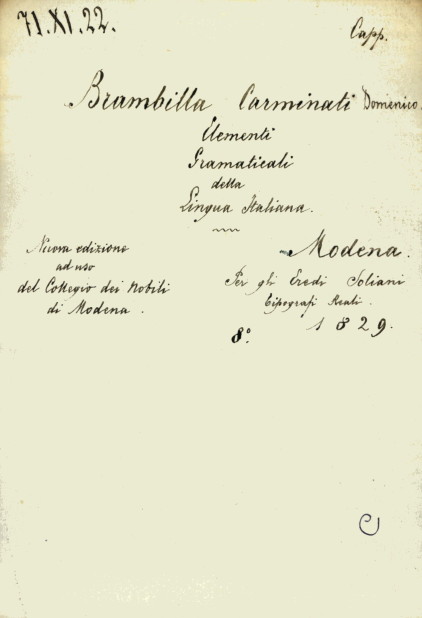 71.XI.22.
Capp.
Brambilla Carminati Domenico.
Elementi
Gramaticali
della
Lingua Italiana.
Nuova edizione
ad uso
del Collegio dei Nobili
di Modena.
Modena.
Per gli Eredi Soliani
Tipografi Reali.
8° 1829.
C